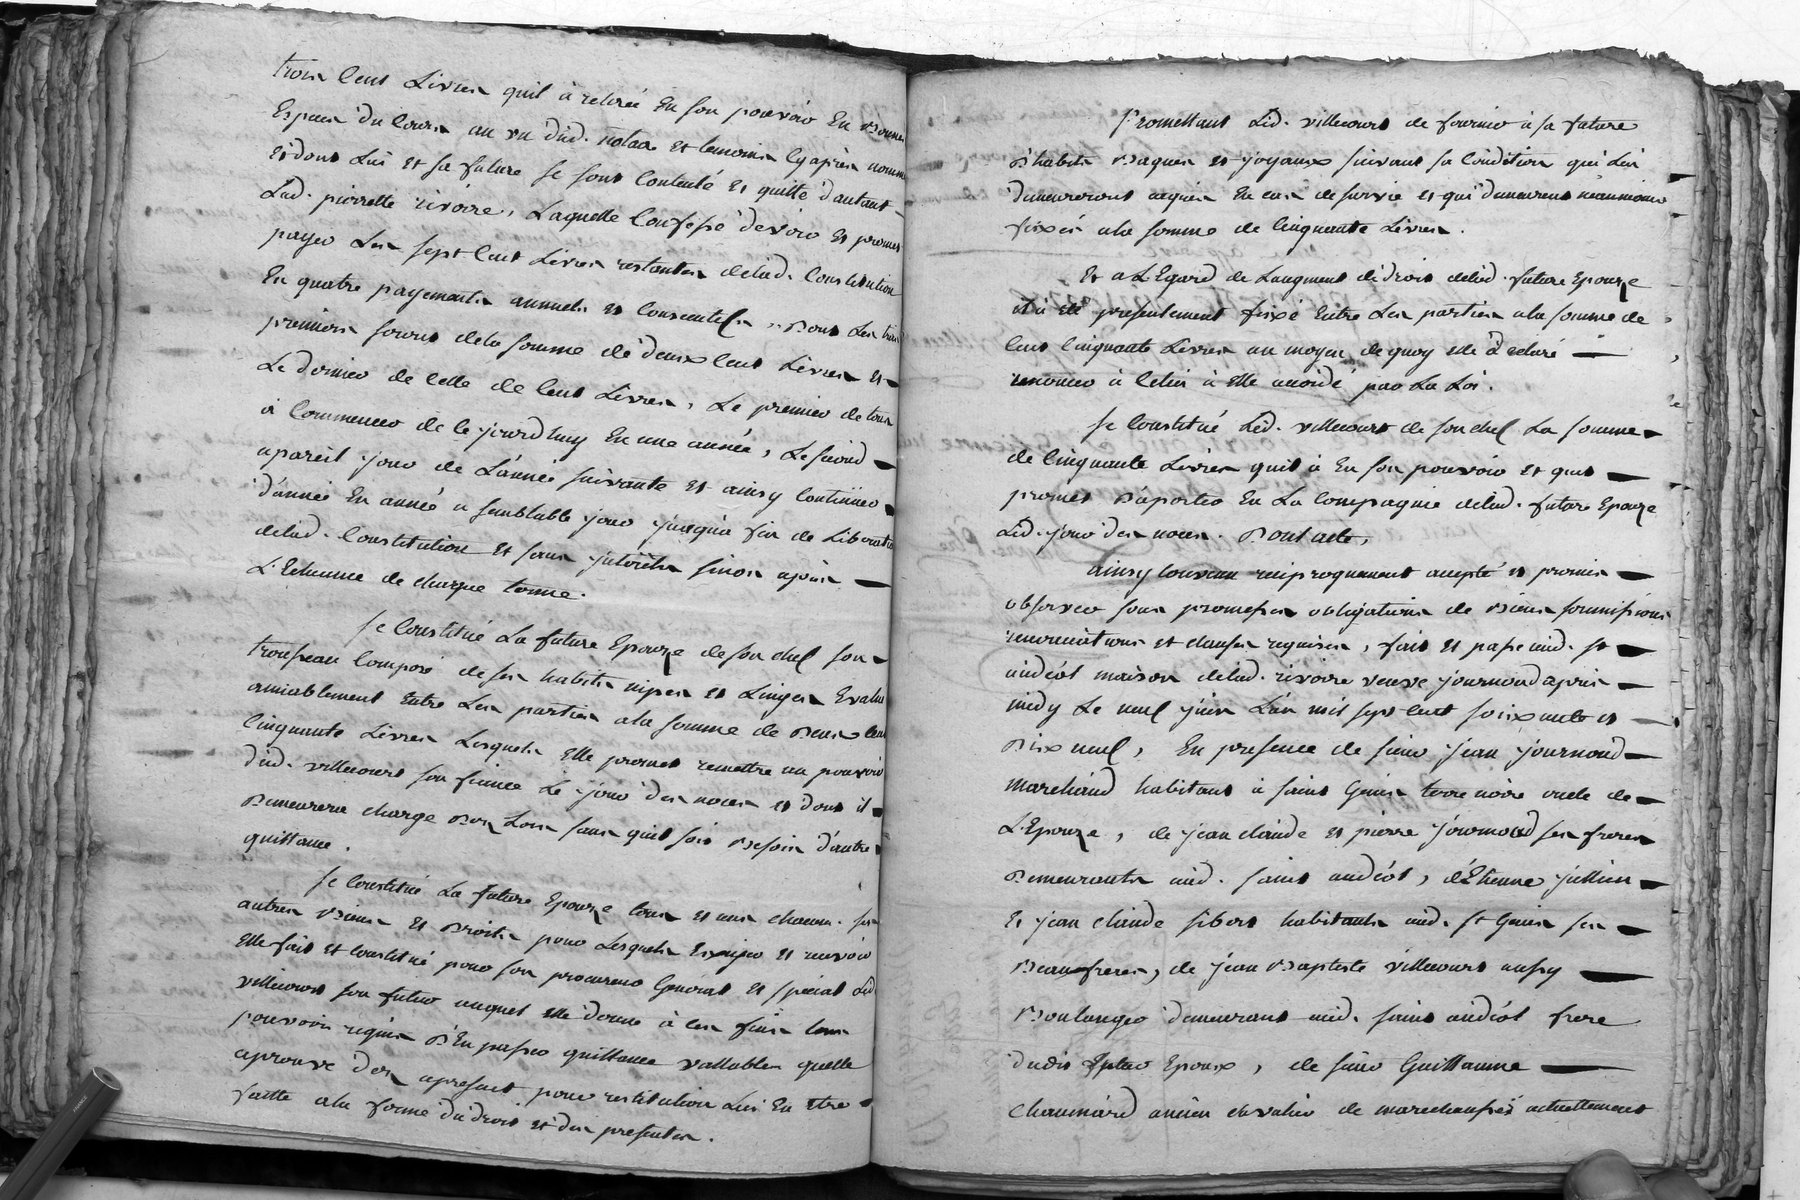 trois Cent Livres quil à retirée En son pouvoir En Bonnes
Especes du Cours au vu dud. notaire et temoins Cyaprès nommés
et dont Lui et sa future se sont Contenté et quitté d'autant
Lad. pierrette rivoire, Laquelle Confesse devoir et promet
payer Les sept Cent Livres restantes delad. Constitution
En quatre payements annuels et Consecutifs, Dont Les trois
premiers seront dela somme de deux Cent Livres et
Le dernier de Celle de Cent Livres, Le premier de tous
à Commencer de Ce jourd'huy En une année, Le second
apareil jour de L'année suivante et ainsy Continuer
d'année En année a semblable jour jusqu'a fin de Liberation
delad. Constitution et sans jnterêts sinon après
L'Echeance de chaque terme.
Se Constitué La future Epouze de son chef son
trousseau Composé de ses habits nipes et Linges Evalué
amiablement Entre Les parties ala somme de Deux Cent
Cinquante Livres Lesquels Elle promet remettre au pouvoir
dud. villecourt son fiancé Le jour des noces et dont il
Demeurera chargé Dez Lors sans quil soit Besoin d'autre
quittance.
Se Constitué La future Epouze tous et uns chacuns ses
autres Biens et Droits pour Lesquels Exiger et recevoir
Elle fait et Constitué pour son procureur Général et special Led.
villecourt son futur auquel Elle donne à Ces fins tous
pouvoirs requis D'En passer quittances vallables quelle
aprouve des apresent pour restitution Lui En Etre
faitte ala forme du droit et des presentes.
Promettant Led. villecourt de fournir à sa future
D'habits Bagues et joyaux suivant sa Condition qui Lui
demeureront acquis En cas de survie et qui demeurent néanmoins
fixés ala somme de Cinquante Livres.
Et a L'Egard de Laugment de droit delad. future Epouze
il à Eté presentement fixé Entre Les parties ala somme de
Cent Cinquante Livres au moyen de quoy Elle à declaré
renoncer à Celui à Elle accordé par La Loi.
Se Constitué Led. villecourt de son chef La somme
de Cinquante Livres quil à En son pouvoir et quil
promet D'aporter En La Compagnie delad. future Epouze
Led. jour des noces. Dont acte,
ainsy Convenu reciproquement accepté et promis
observer sous promesses obligations de Biens soumissions
renonciations et clauses requises, fait et passé aud. st
andéol maison delad. rivoire veuve journoud après
midy Le neuf juin L'an mil sept Cent soixante et
Dix neuf, En presence de sieur jean journoud
marchand habitant à saint Genis terre noire oncle de
L'Epouze, de jean claude et pierre journoud ses freres
Demeurants aud. saint andéol, d'Etienne jullien
et jean claude sibert habitants aud. st Genis ses
Beaufreres, de jean Baptiste villecourt aussy
Boulanger demeurant aud. saint andéol frere
dudit Epoux, de sieur Guillaume
chaumard ancien chevalier de marechaussée actuellement